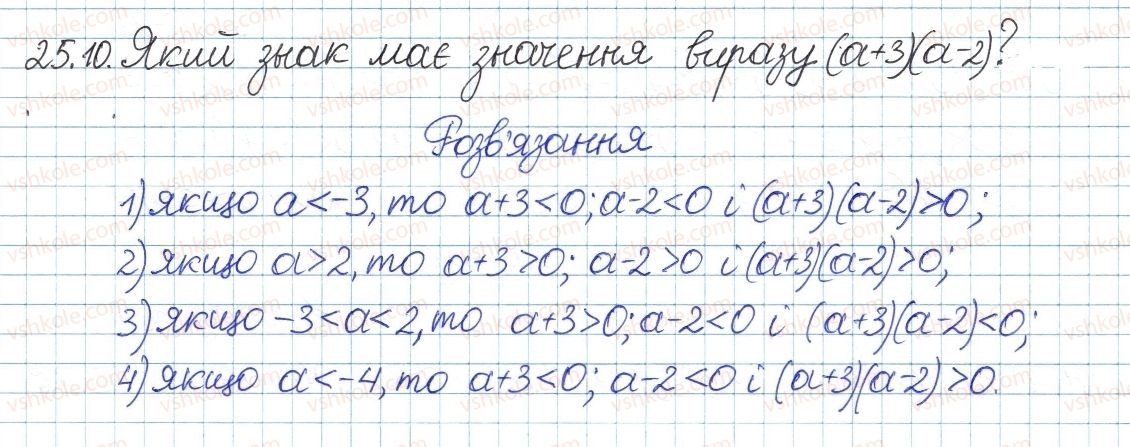 25.10. Який знак має значення виразу (a+3)(a-2)?
Розв'язання
1) якщо a<-3, то a+3<0; a-2<0 і (a+3)(a-2)>0;
2) якщо a>2, то a+3>0; a-2>0 і (a+3)(a-2)>0;
3) якщо -3<a<2, то a+3>0; a-2<0 і (a+3)(a-2)<0;
4) якщо a<-4, то a+3<0; a-2<0 і (a+3)(a-2)>0.